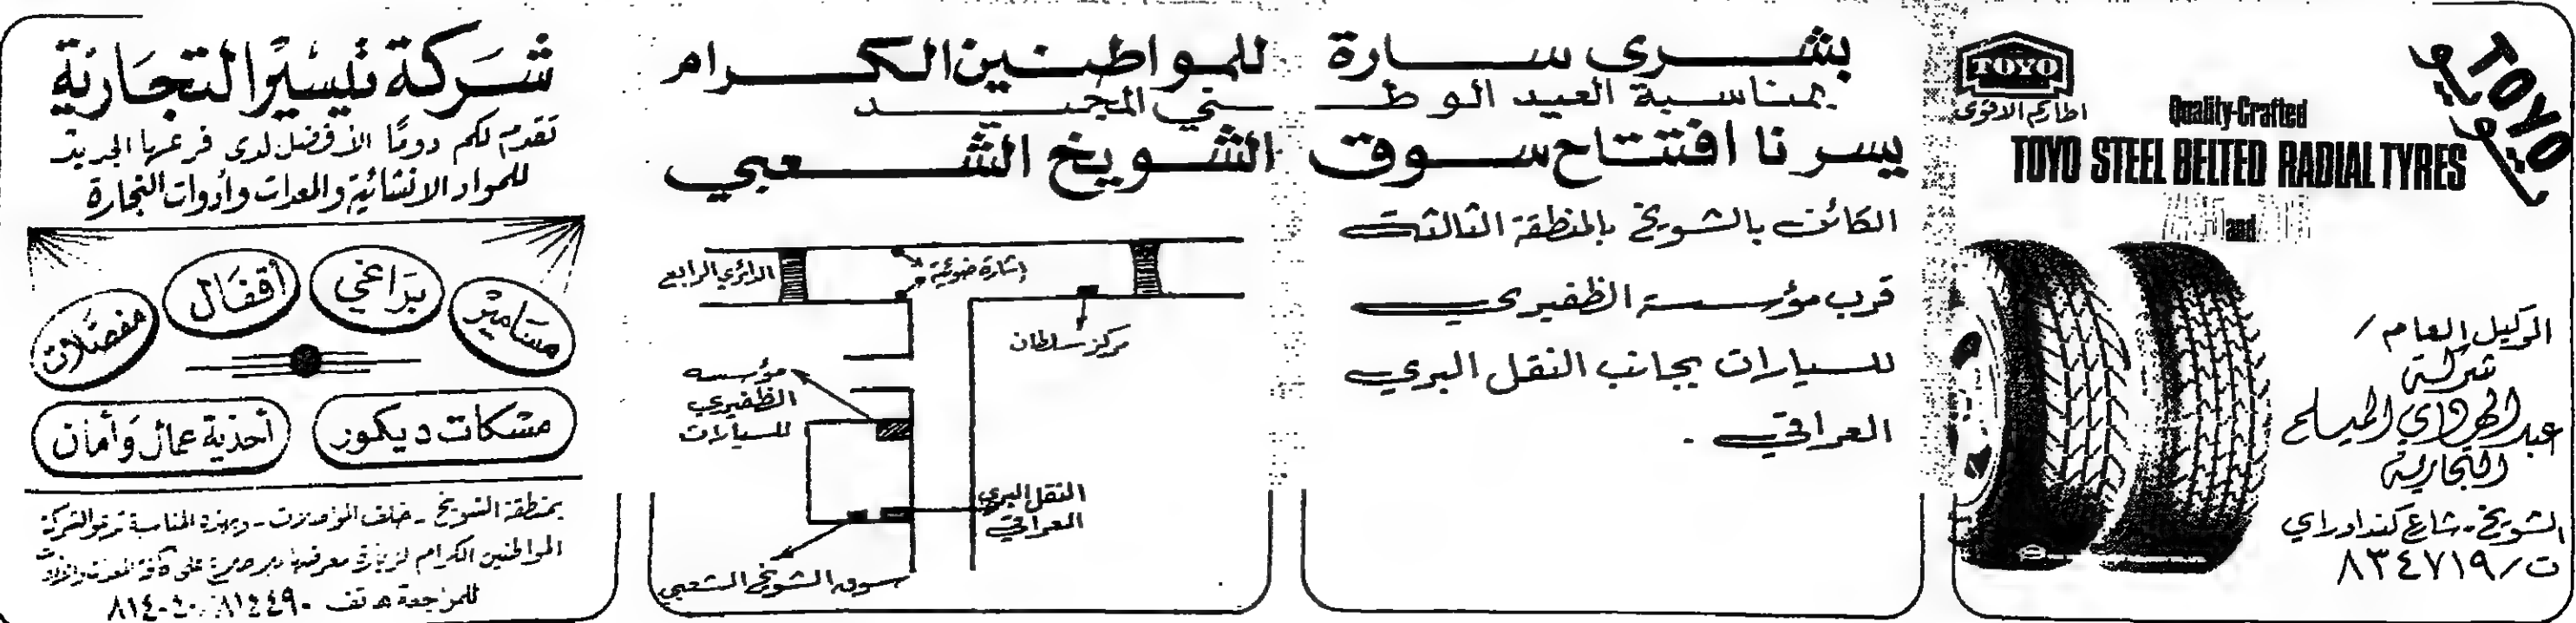 TOYO
تويو
TOYO
اطاركم الاقوى
Quality-Crafted
TOYO STEEL BELTED RADIAL TYRES
and
الوكيل العام /
شركة
عبدالهادي الميلم
التجارية
الشويخ - شارع كندادراي
ت / ٨٣٤٧١٩
بشرى سارة للمواطنين الكرام
بمناسبة العيد الوطني المجيد
يسرنا افتتاح سوق الشويخ الشعبي
الكائن بالشويخ بالمنطقة الثالثة
قرب مؤسسة الظفيري
للسيارات بجانب النقل البري
العراقي .
الدائري الرابع
إشارة ضوئية
مركز سلطان
مؤسسه
الظفيري
للسيارات
النقل البري
العراقي
سوق الشويخ الشعبي
شركة تيسير التجارية
تقدم لكم دومًا الأفضل لدى فرعها الجديد
للمواد الانشائية والمعدات وأدوات النجارة
مسامير
براغي
أقفال
مفصلات
مسكات ديكور
أحذية عمال وأمان
بمنطقة الشويخ - خلف المواصلات - وبهذه المناسبة تدعو الشركة
المواطنين الكرام لزيارة معرضها
للمراجعة هاتف ٨١٤٤٩٠